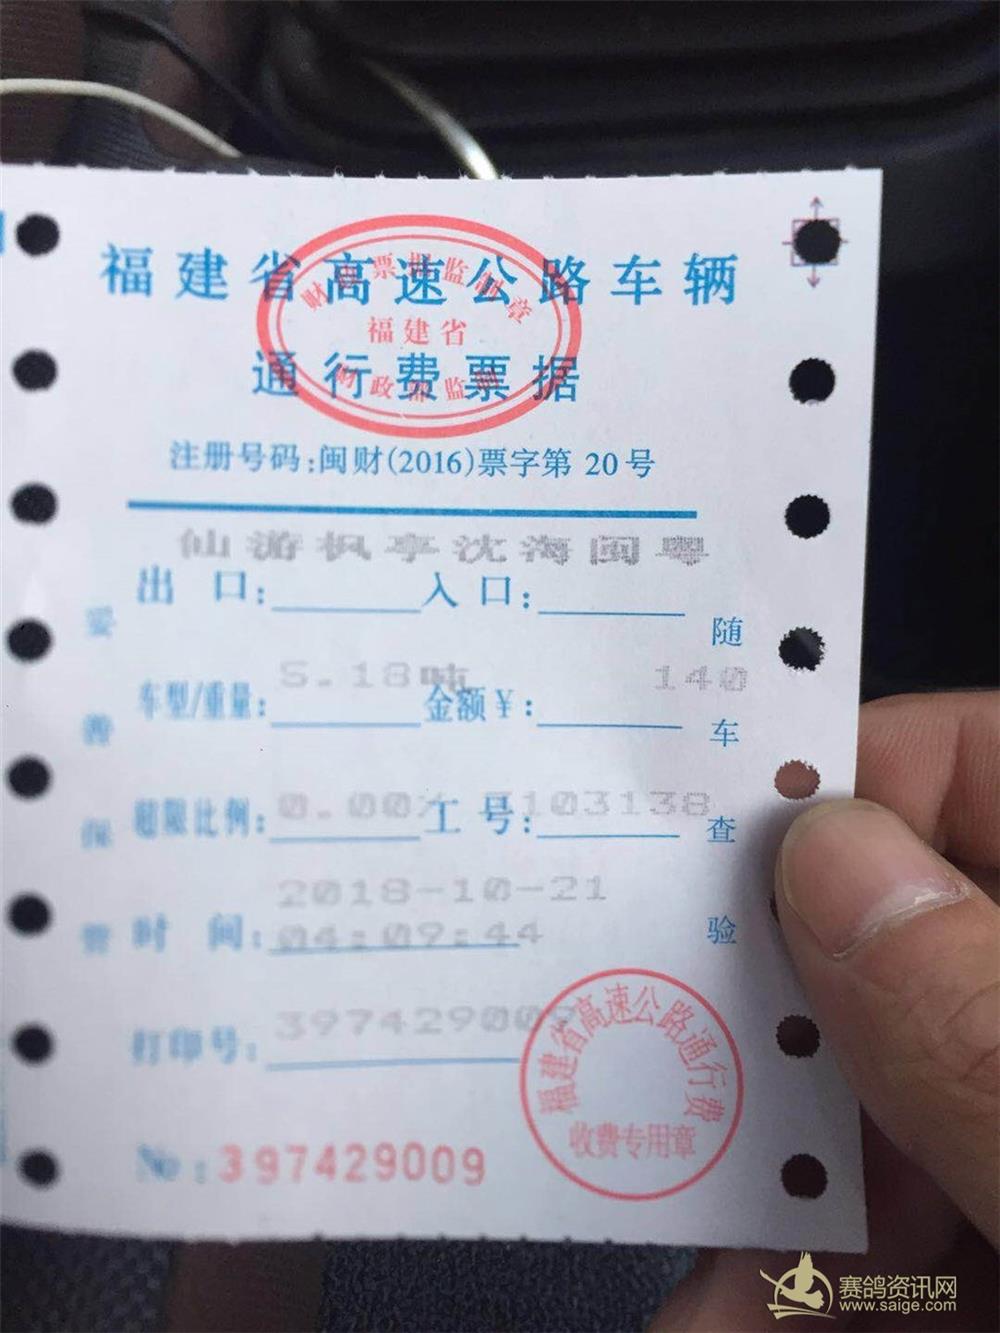 福建省高速公路车辆
通行费票据
财政票据监制章
福建省
财政部监制
注册号码:闽财(2016)票字第 20号
仙游枫亭沈海闽粤
出 口: 入 口:
5.18吨 140
车型/重量: 金额¥:
0.00% 3103138
超限比例: 工 号:
2018-10-21
时 间: 04:09:44
打印号: 397429009
No:397429009
随车查验
妥善保管
福建省高速公路通行费
收费专用章
赛鸽资讯网
www.saige.com